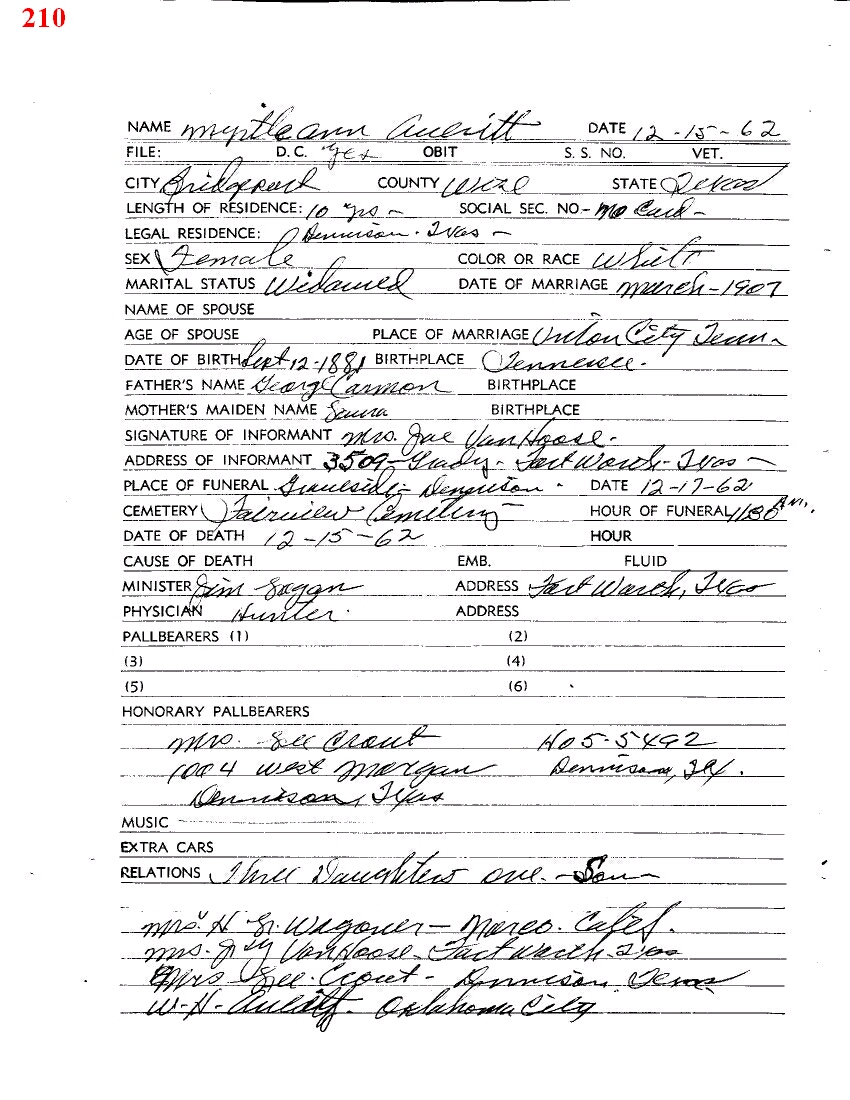 210
NAME Myrtle ann Averitt DATE 12-15-62
FILE: D.C. Yes OBIT S. S. NO. VET.
CITY Bridgeport COUNTY Wise STATE Texas
LENGTH OF RESIDENCE: 10 yrs - SOCIAL SEC. NO. - no Card -
LEGAL RESIDENCE: Dennison. Texas -
SEX Female COLOR OR RACE White
MARITAL STATUS Widowed DATE OF MARRIAGE march-1907
NAME OF SPOUSE
AGE OF SPOUSE PLACE OF MARRIAGE Union City Tenn-
DATE OF BIRTH Sept 12-1881 BIRTHPLACE Tennessee.
FATHER'S NAME George Carmon BIRTHPLACE
MOTHER'S MAIDEN NAME Laura BIRTHPLACE
SIGNATURE OF INFORMANT Mrs. Joe VanHoose-
ADDRESS OF INFORMANT 3509-Grady-Fort Worth-Texas-
PLACE OF FUNERAL Graveside-Dennison. DATE 12-17-62
CEMETERY Fairview Cemetery HOUR OF FUNERAL 1130 A.M.
DATE OF DEATH 12-15-62 HOUR
CAUSE OF DEATH EMB. FLUID
MINISTER Jim ADDRESS Fort Worth, Texas
PHYSICIAN Hunter. ADDRESS
PALLBEARERS (1) (2)
(3) (4)
(5) (6)
HONORARY PALLBEARERS
Mrs. Lee Crout HO5-5492
1004 West Morgan Dennison, Tex.
Dennison, Texas
MUSIC
EXTRA CARS
RELATIONS Three Daughters one-Son-
Mrs. H Wagoner- Calif.
Mrs. VanHoose-Fort Worth-Texas
Mrs Lee Crout-Dennison. Texas
W-H-Averitt. Oklahoma City